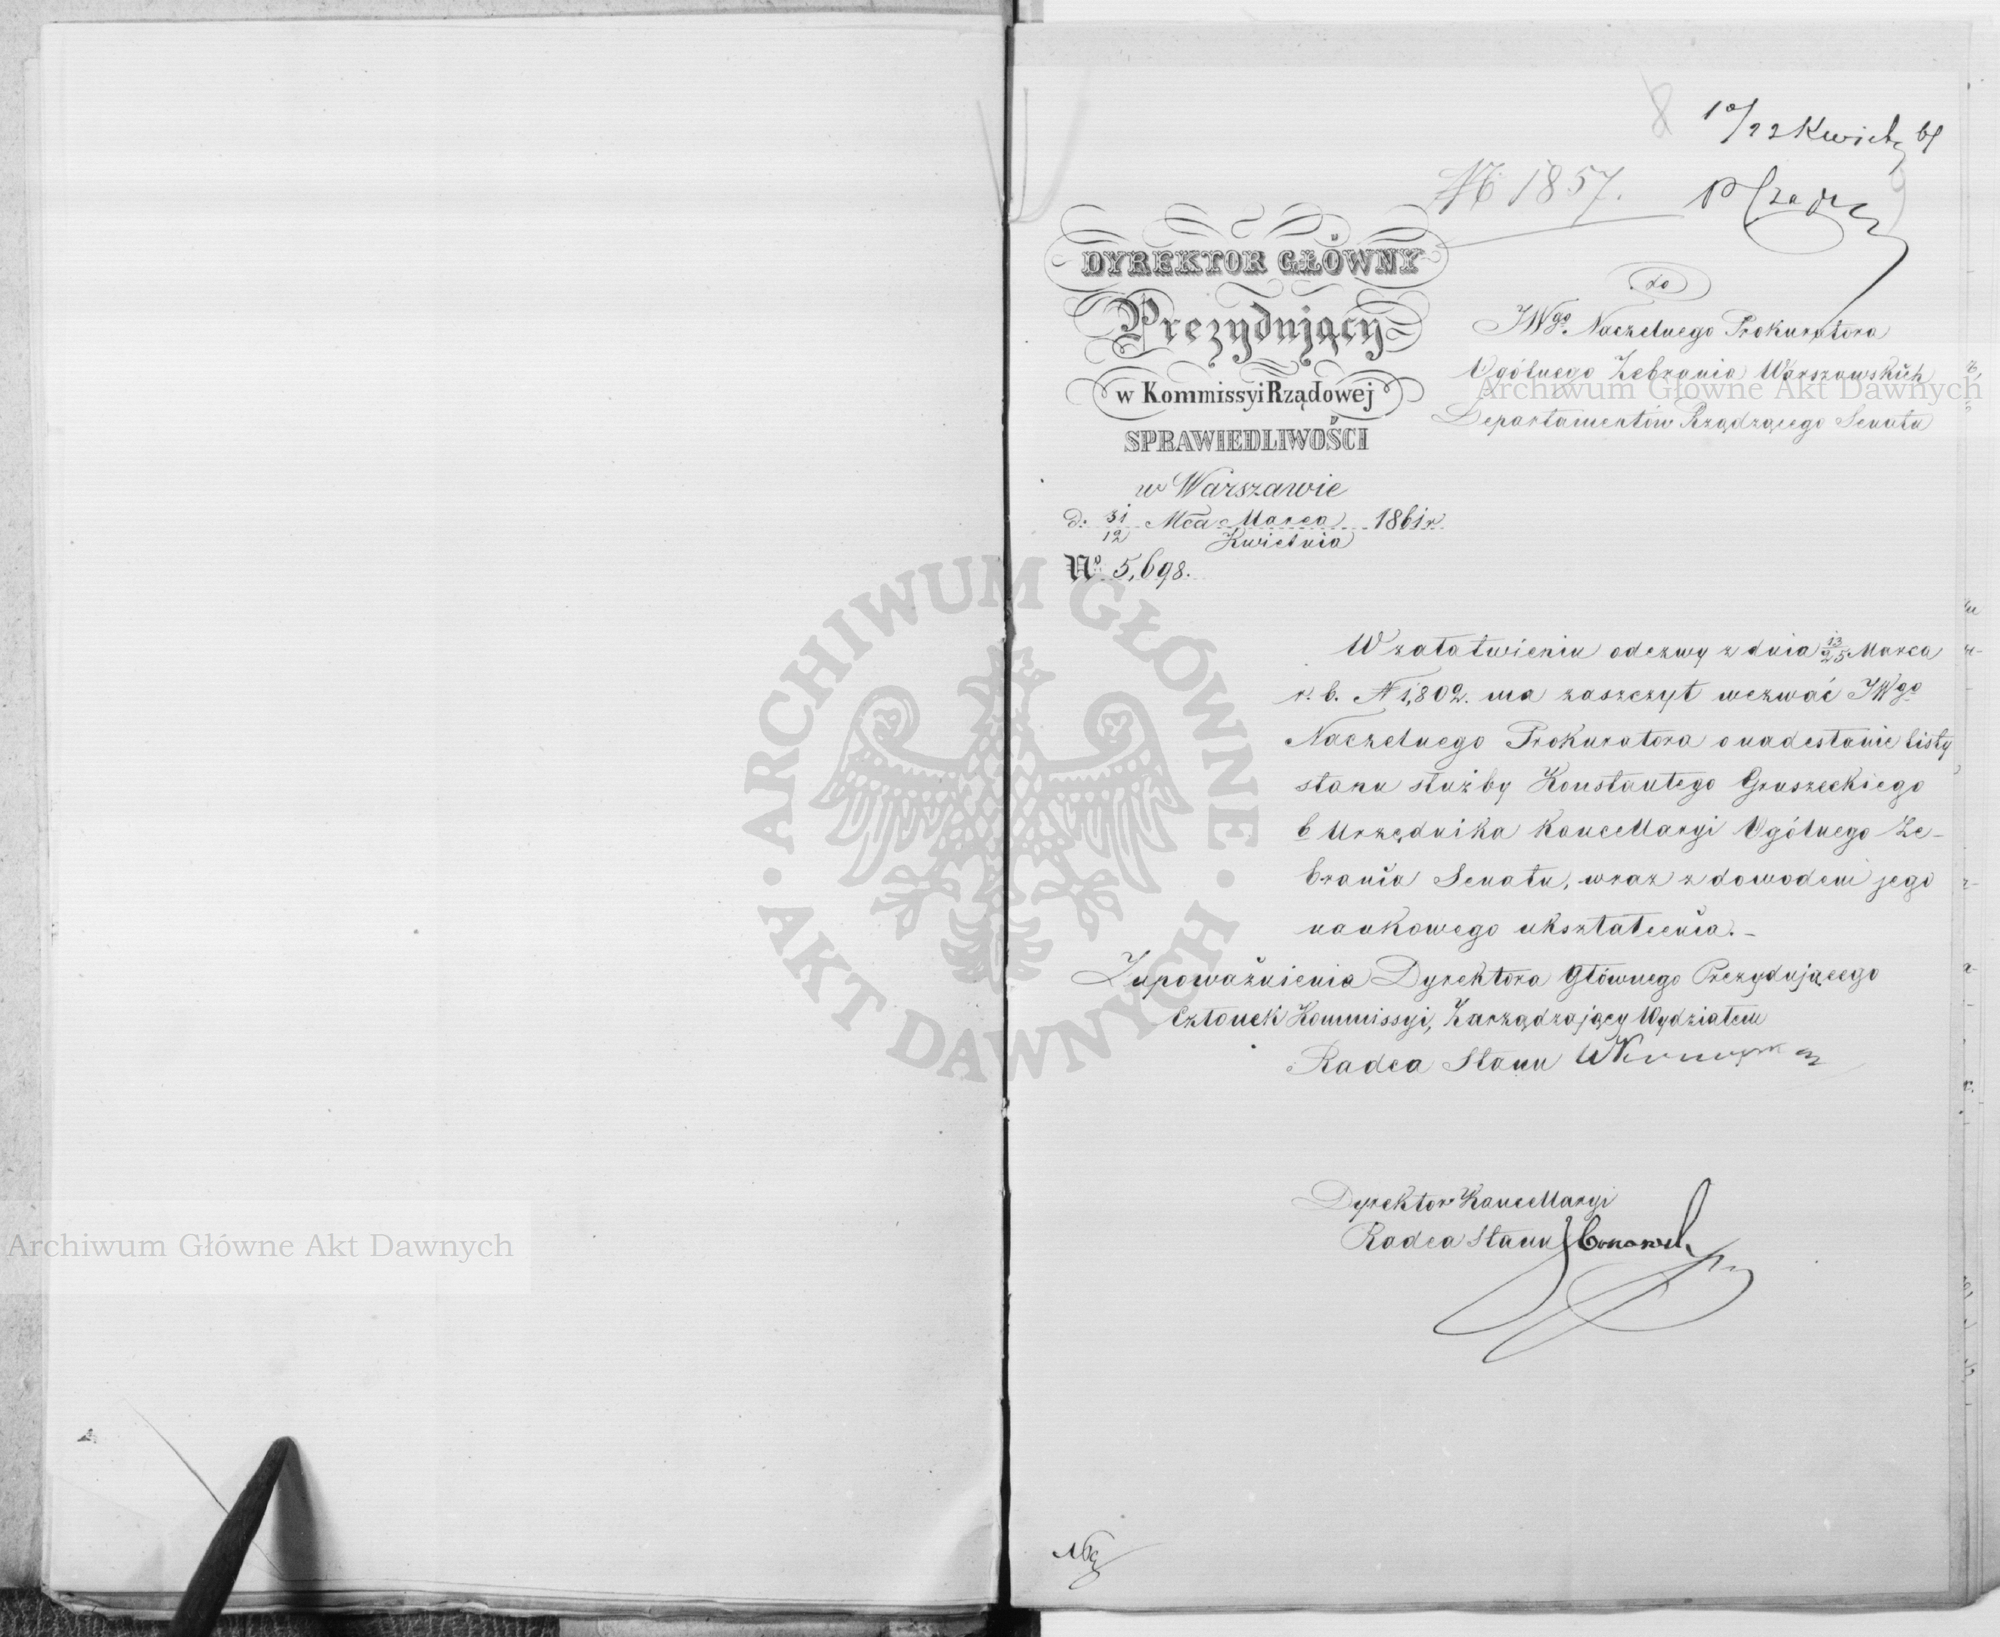 8
10/22 Kwietn 61
№ 1857.
DYREKTOR GŁÓWNY
Prezydujący
w Kommissyi Rządowej
SPRAWIEDLIWOŚCI
w Warszawie
d: 31/12 Mca Marca/Kwietnia 1861 r.
No 5,698.
do
JWgo. Naczelnego Prokuratora
Ogólnego Zebrania Warszawskich
Departamentów Rządzącego Senatu
W załatwieniu odezwy z dnia 13/25 Marca
r. b. N 1,802. ma zaszczyt wezwać JWgo
Naczelnego Prokuratora o nadesłanie listy
stanu służby Konstantego Gruszeckiego
b Urzędnika Kancellaryi Ogólnego Ze-
brania Senatu, wraz z dowodem jego
naukowego ukształcenia. –
Z upoważnienia Dyrektora Głównego Prezydującego
Członek Kommissyi, Zarządzający Wydziałem
Radca Stanu
Dyrektor Kancellaryi
Radca Stanu
Archiwum Główne Akt Dawnych
Archiwum Główne Akt Dawnych
ARCHIWUM GŁÓWNE
AKT DAWNYCH